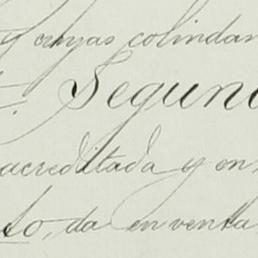 y cuyas colindan
Segun
acreditada y en
to, da en venta